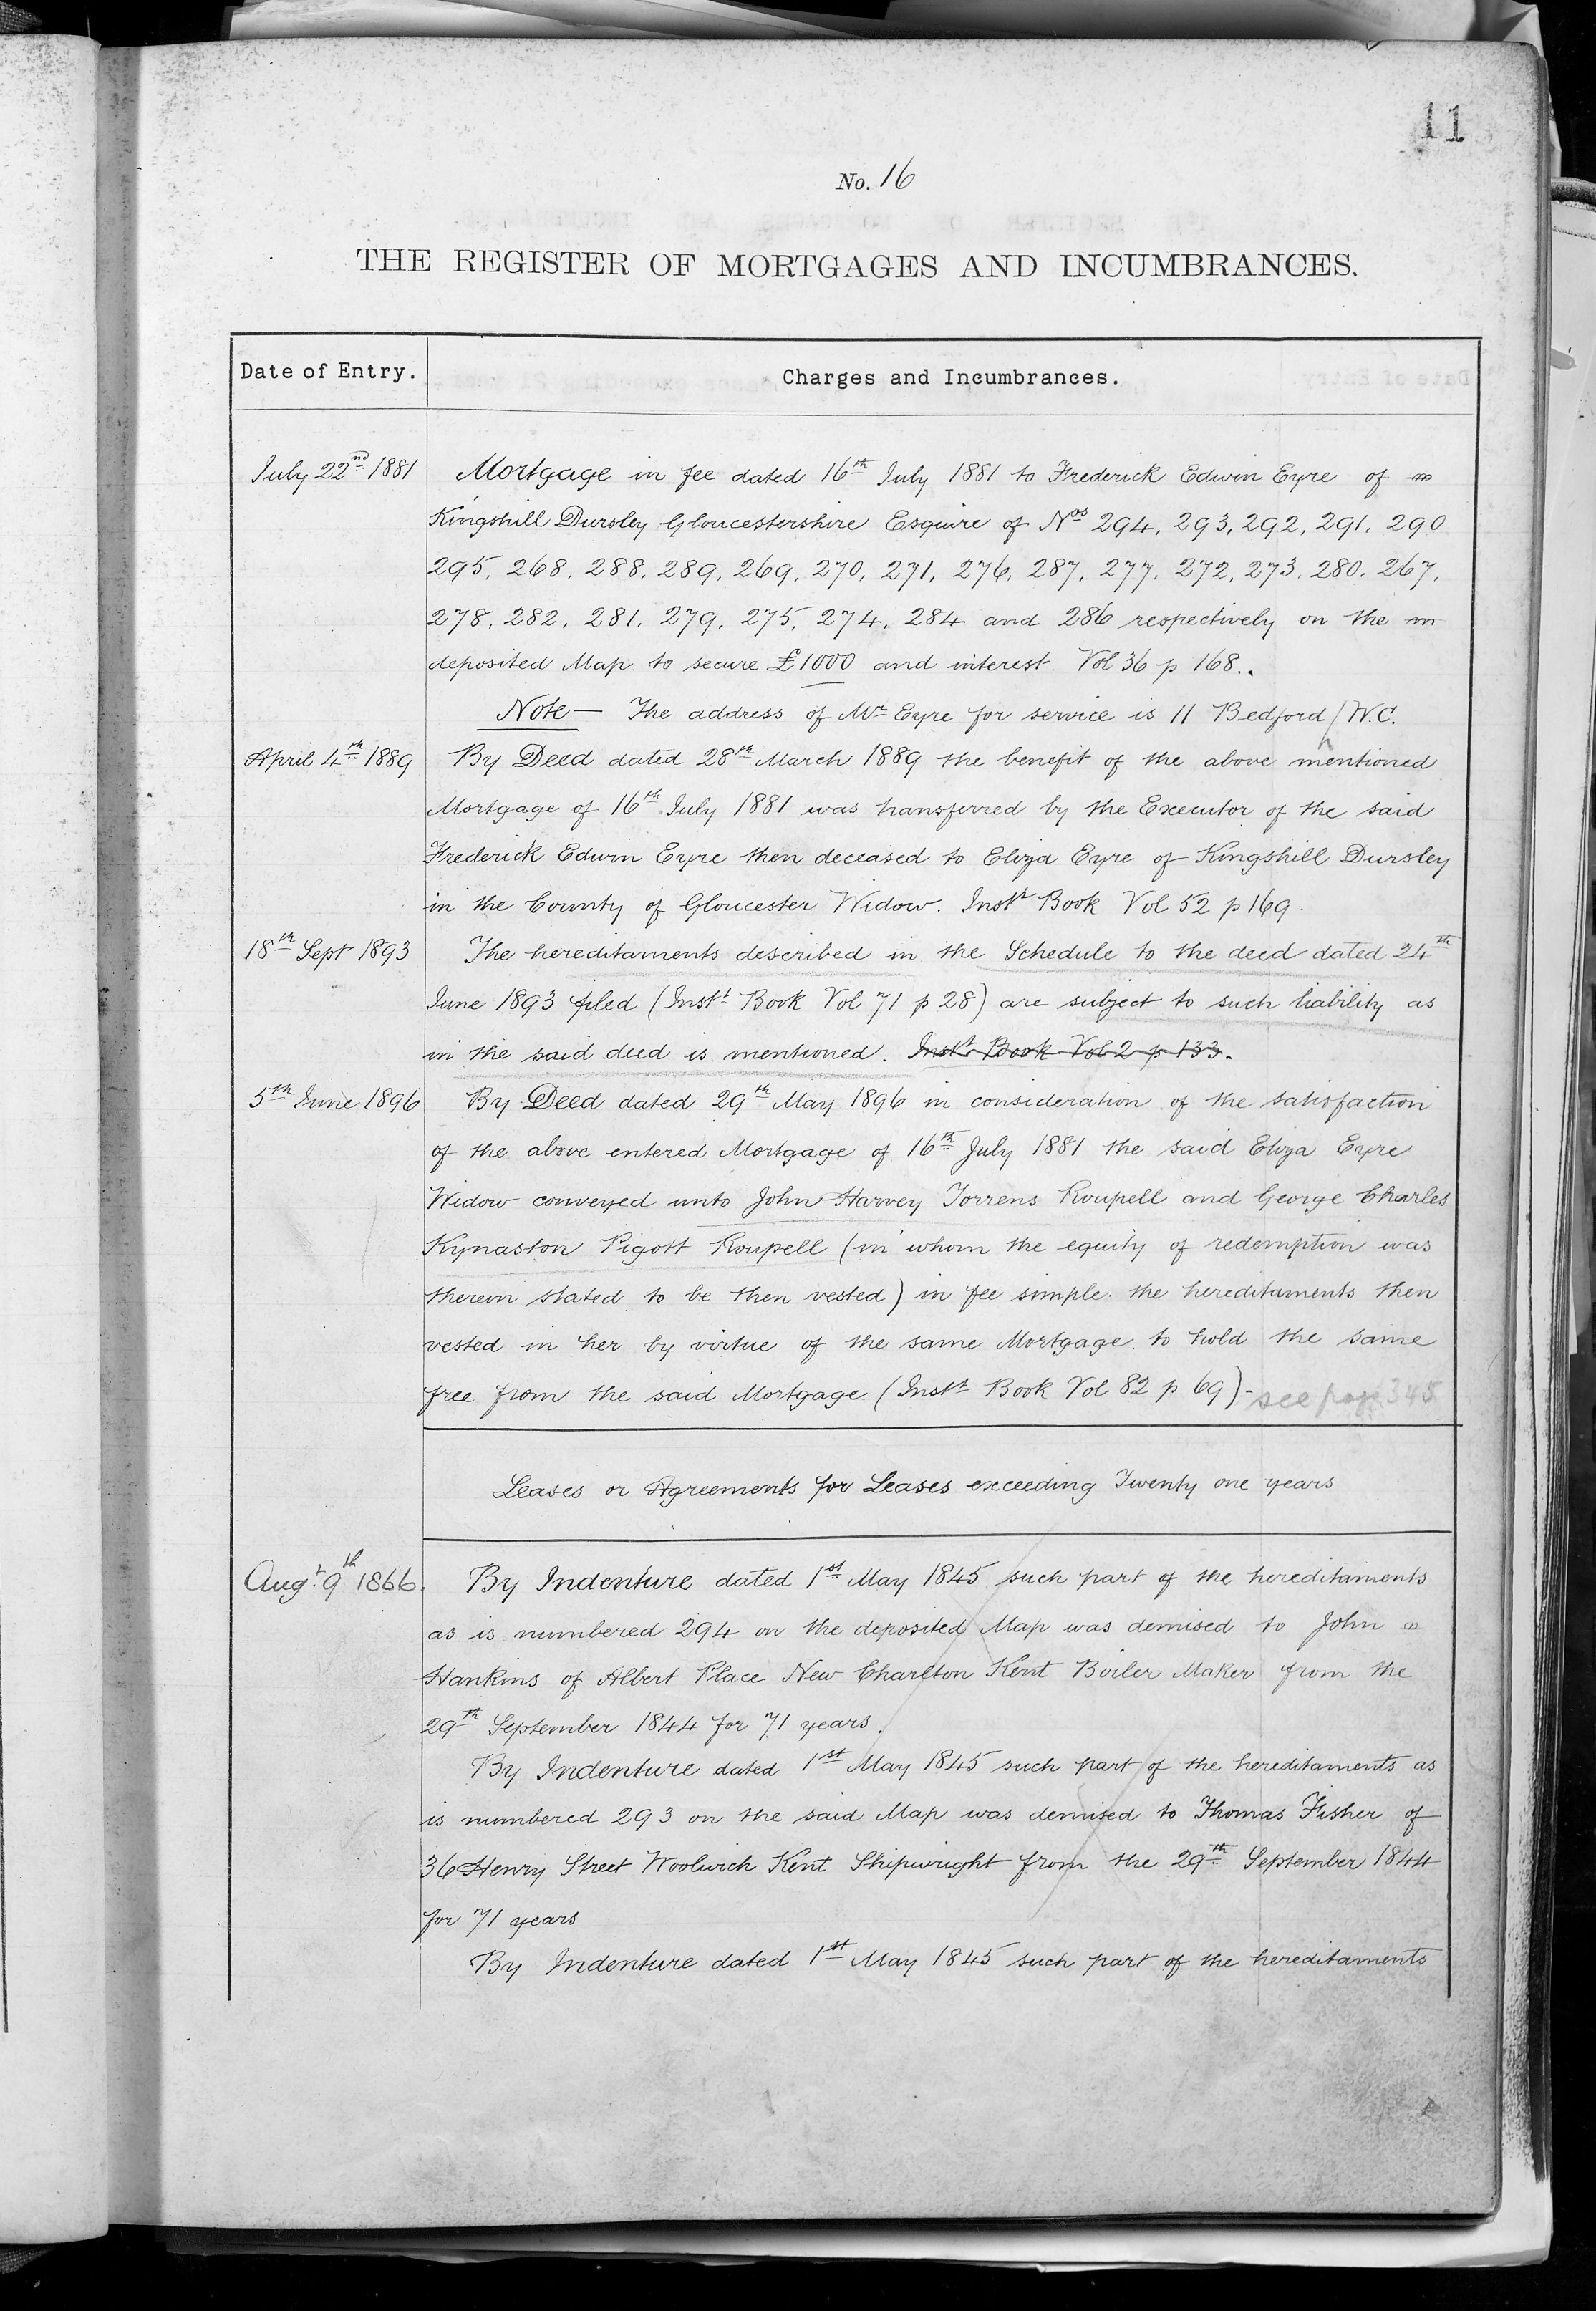 11
No. 16
THE REGISTER OF MORTGAGES AND INCUMBRANCES.
Date of Entry.
Charges and Incumbrances.
July 22nd 1881
Mortgage in fee dated 16th July 1881 to Frederick Edwin Eyre of
Kingshill Dursley Gloucestershire Esquire of Nos 294, 293, 292, 291, 290
295, 268, 288, 289, 269, 270, 271, 276, 287, 277, 272, 273, 280, 267,
278, 282, 281, 279, 275, 274, 284 and 286 respectively on the
deposited Map to secure £1000 and interest. Vol 36 p 168..
Note — The address of Mr Eyre for service is 11 Bedford / W.C.
April 4th 1889
By Deed dated 28th March 1889 the benefit of the above mentioned
Mortgage of 16th July 1881 was transferred by the Executor of the said
Frederick Edwin Eyre then deceased to Eliza Eyre of Kingshill Dursley
in the County of Gloucester Widow. Instt Book Vol 52 p 169
18th Sept 1893
The hereditaments described in the Schedule to the deed dated 24th
June 1893 filed (Instt Book Vol 71 p 28) are subject to such liability as
in the said deed is mentioned. Instt Book Vol 2 p 133.
5th June 1896
By Deed dated 29th May 1896 in consideration of the satisfaction
of the above entered Mortgage of 16th July 1881 the said Eliza Eyre
Widow conveyed unto John Harvey Torrens Roupell and George Charles
Kynaston Pigott Roupell (in whom the equity of redemption was
therein stated to be then vested) in fee simple. the hereditaments then
vested in her by virtue of the same Mortgage to hold the same
free from the said Mortgage (Instt Book Vol 82 p 69)- see page 345
Leases or Agreements for Leases exceeding Twenty one years
Augt 9th 1866.
By Indenture dated 1st May 1845 such part of the hereditaments
as is numbered 294 on the deposited Map was demised to John
Hankins of Albert Place New Charlton Kent Boiler Maker from the
29th September 1844 for 71 years.
By Indenture dated 1st May 1845 such part of the hereditaments as
is numbered 293 on the said Map was demised to Thomas Fisher of
36 Henry Street Woolwich Kent Shipwright from the 29th September 1844
for 71 years
By Indenture dated 1st May 1845 such part of the hereditaments